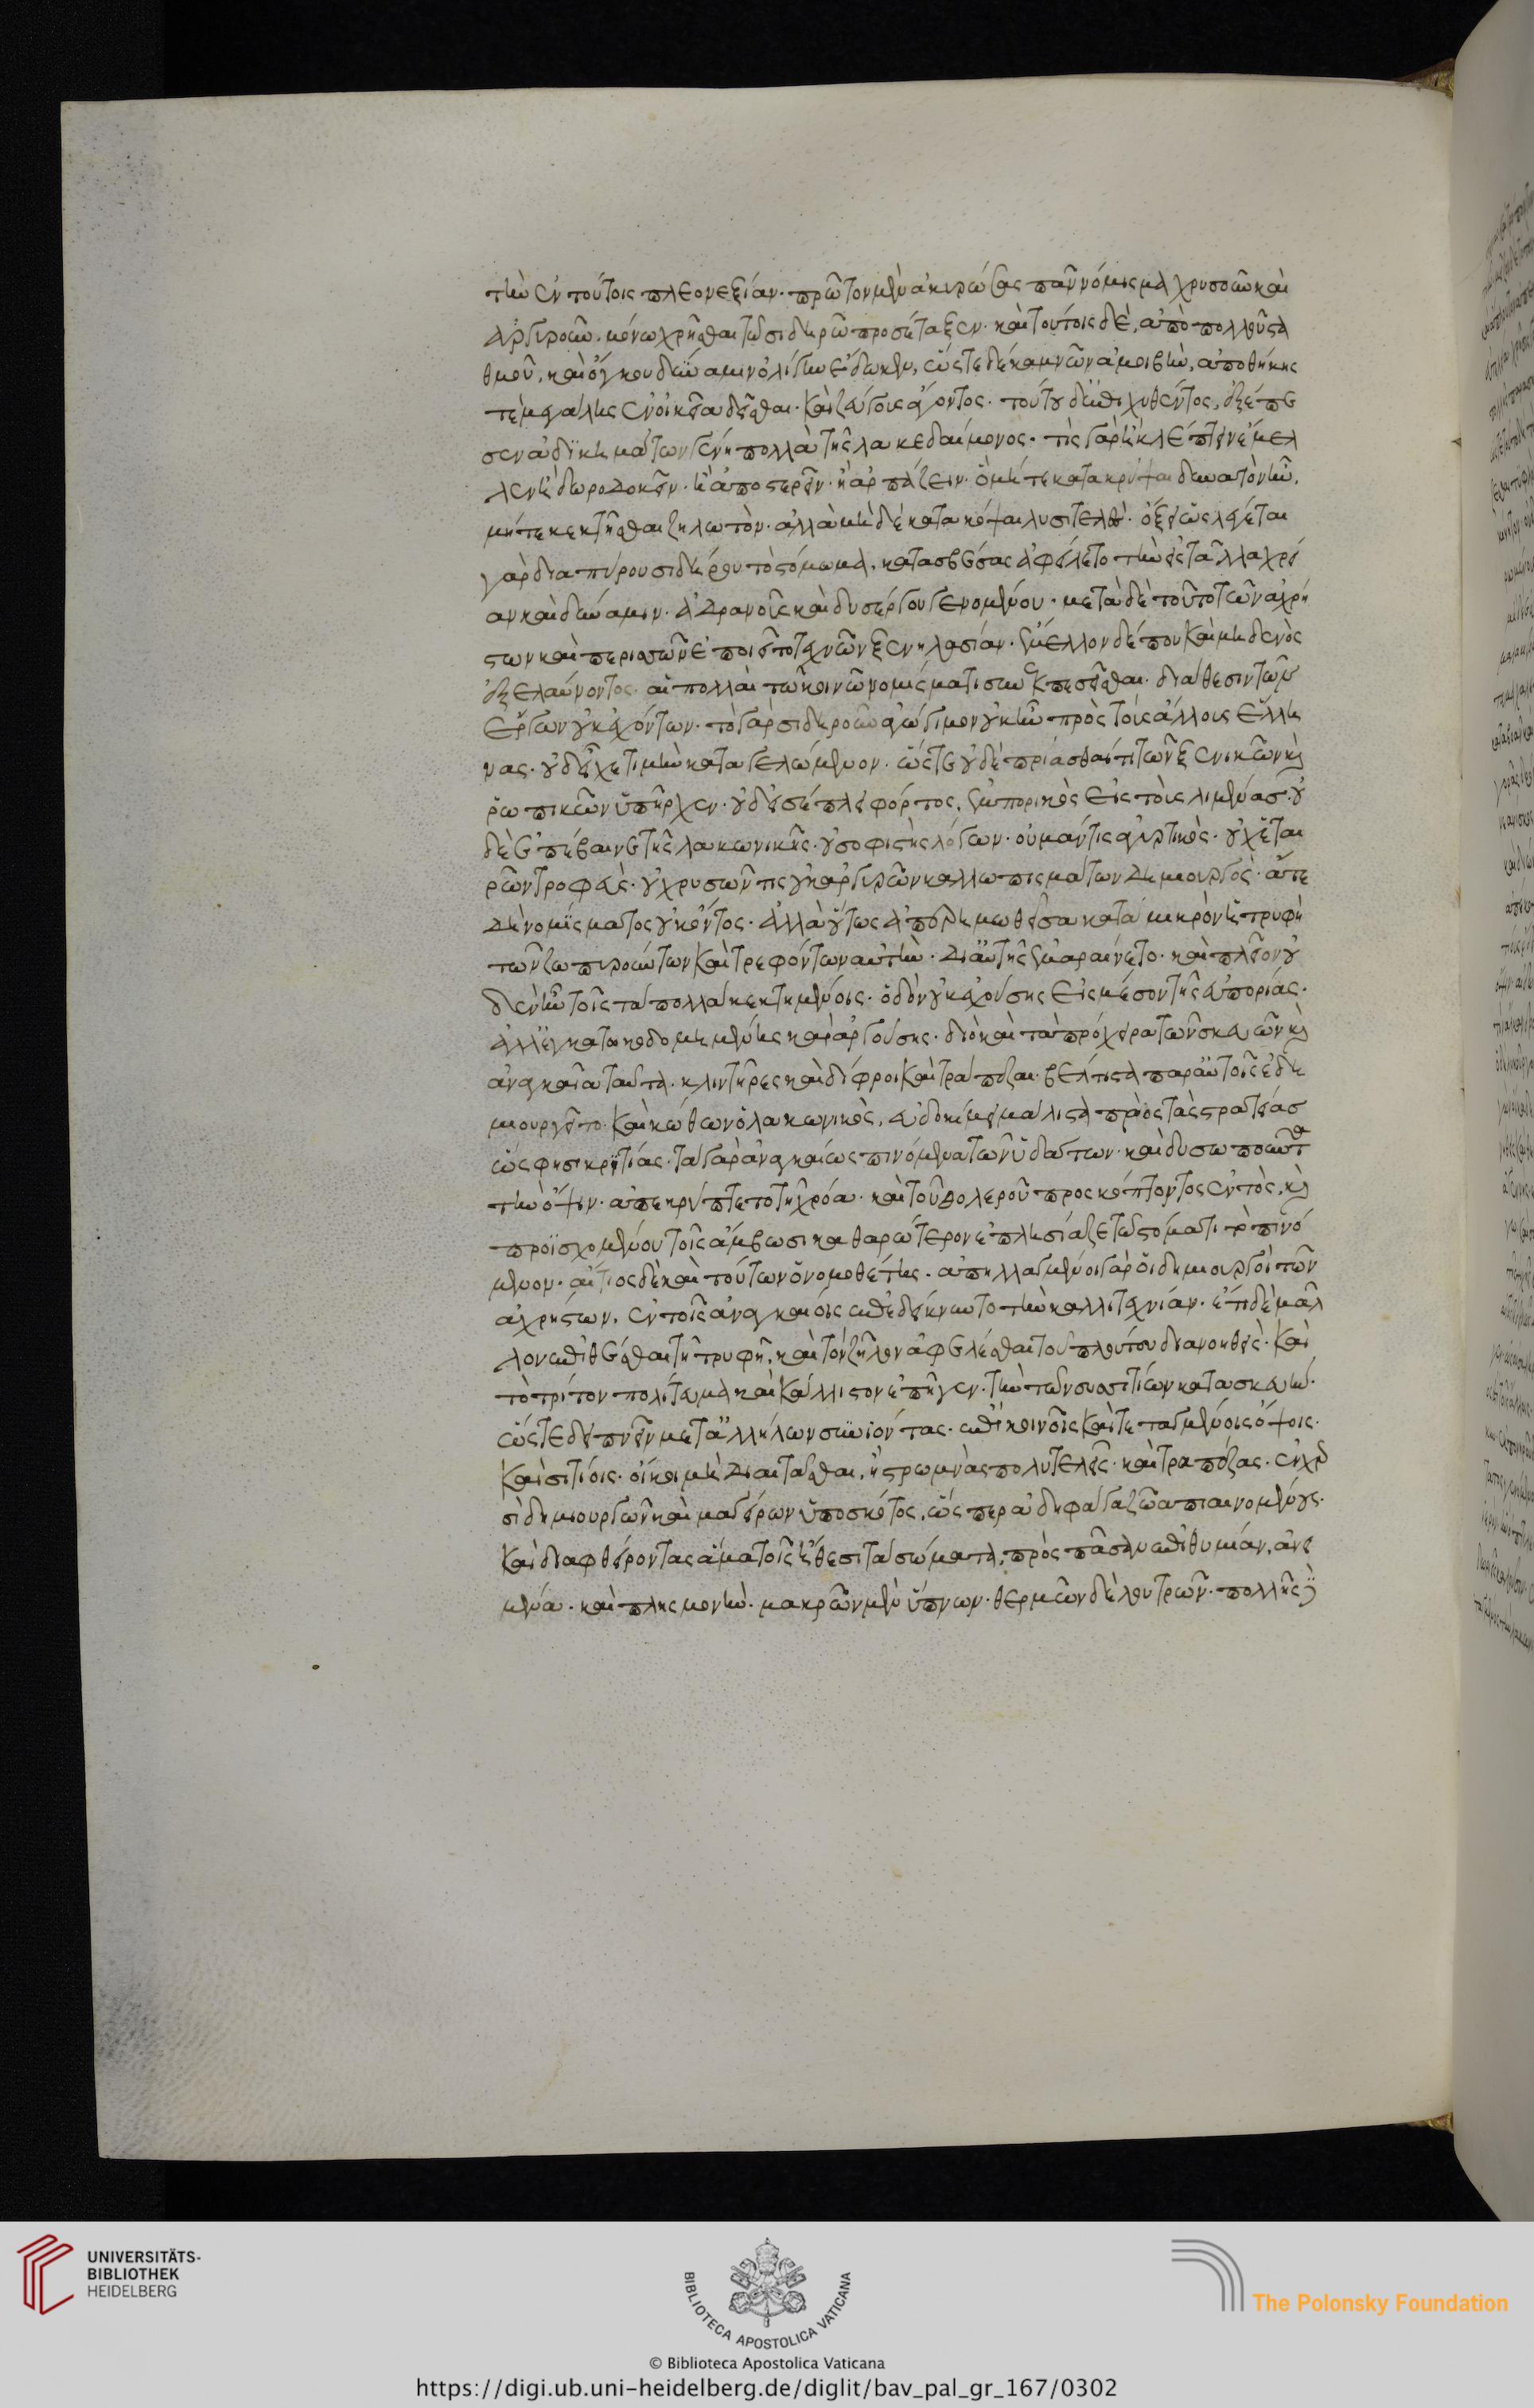 τὴν ἐν τούτοις πλεονεξίαν· πρῶτον μὲν ἀκυρώσας πᾶν νόμισμα χρυσοῦν καὶ
ἀργυροῦν, μόνω χρῆσθαι τῶ σιδηρῶ προσέταξεν· καὶ τούτοις δὲ, ἀπὸ πολλοῦ στα
θμοῦ, καὶ ὄγκου δύναμιν ὀλίγην ἔδωκεν, ὥστε δέκα μνῶν ἀμοιβὴν, ἀποθήκης
τε μεγάλης ἐν οἰκεία δεῖσθαι· καὶ ζεύγους ἄγοντος· τούτου δὲ ἐπιχυθέντος, ἐξέπε
σεν ἀδικημάτων γένη πολλὰ τῆς λακεδαίμονος· τίς γὰρ ἢ κλέπτειν ἔμελ
λεν ἢ δωροδοκεῖν· ἢ ἀποστερεῖν· ἢ ἁρπάζειν· ὃ μήτε κατακρύψαι δυνατὸν ἦν,
μήτε κεκτῆσθαι ζηλωτὸν· ἀλλὰ μὴ δὲ κατακόψαι λυσιτελὲς· ὄξει ὡς λέγεται
γὰρ διαπύρου σιδήρου τὸ στόμωμα, κατασβέσας ἀφείλετο τὴν εἰς τἆλλα χρεί
αν καὶ δύναμιν· ἀδρανοῦς καὶ δυσέργου γενομένου· μετὰ δὲ τοῦτο τῶν ἀχρή
στων καὶ περισσῶν ἐποιεῖτο τεχνῶν ξενηλασίαν· ἔμελλον δέ που καὶ μηδενὸς
ἐξελαύνοντος· αἱ πολλαὶ τῶ κοινῶ νομίσματι συνεκπεσεῖσθαι· διάθεσιν τῶν
ἔργων οὐκ ἐχόντων· τὸ γὰρ σιδηροῦν ἀγώγιμον οὐκ ἦν πρὸς τοὺς ἄλλους ἕλλη
νας· οὐδ' εἶχε τιμὴν καταγελώμενον· ὥστε οὐδὲ πρίασθαί τι τῶν ξενικῶν καὶ
ῥωπικῶν ὑπῆρχεν· οὐδ' εἰσέπλει φόρτος, ἐμπορικὸς εἰς τοὺς λιμένας· οὐ
δὲ ἐπέβαινε τῆς λακωνικῆς· οὐ σοφιστὴς λόγων· οὐ μάντις ἀγυρτικὸς· οὐχ ἑται
ρῶν τροφεὺς· οὐ χρυσῶν τις οὐκ ἀργυρῶν καλλωπισμάτων δημιουργὸς· ἅτε
δὴ νομίσματος οὐκ ὄντος· ἀλλὰ οὕτως ἀπερημωθεῖσα κατὰ μικρὸν ἡ τρυφὴ
τῶν ζωπυρούντων καὶ τρεφόντων αὐτὴν· δι' αὑτῆς ἐμαραίνετο· καὶ πλέον οὐ
δὲν ἦν τοῖς τὰ πολλὰ κεκτημένοις· ὁδὸν οὐκ ἐχούσης εἰς μέσον τῆς εὐπορίας·
ἀλλ' ἐγκατωκοδομημένης καὶ ἀργούσης· διὸ καὶ τὰ πρόχειρα τῶν σκευῶν καὶ
ἀναγκαῖα ταῦτα· κλιντῆρες καὶ δίφροι καὶ τράπεζαι· βέλτιστα παρ' αὐτοῖς ἐδη
μιουργεῖτο· καὶ κώθων ὁ λακωνικὸς, εὐδοκίμει μάλιστα πρὸς τὰς στρατείας
ὥς φησι κριτίας· τὰ γὰρ ἀναγκαίως πινόμενα τῶν ὑδάτων· καὶ δυσωποῦντα
τὴν ὄψιν· ἀπεκρύπτετο τῆ χρόα· καὶ τοῦ θολεροῦ προσκόπτοντος ἐντὸς, καὶ
προϊσχομένου τοῖς ἄμβωσι καθαρώτερον ἐπλησίαζε τῶ στόματι τὸ πινό
μενον· αἴτιος δὲ καὶ τούτων ὁ νομοθέτης· ἀπηλλαγμένοι γὰρ οἱ δημιουργοὶ τῶν
ἀχρήστων, ἐν τοῖς ἀναγκαίοις ἐπεδείκνυντο τὴν καλλιτεχνίαν· ἔτι δὲ μᾶλ
λον ἐπιθέσθαι τῆ τρυφῆ, καὶ τὸν ζῆλον ἀφελέσθαι τοῦ πλούτου διανοηθεὶς· καὶ
τὸ τρίτον πολίτευμα καὶ κάλλιστον ἐπῆγεν· τὴν τῶν συσσιτίων κατασκευὴν·
ὥστε δειπνεῖν μετ' ἀλλήλων συνιόντας· ἐπὶ κοινοῖς καὶ τεταγμένοις ὄψοις·
καὶ σιτίοις· οἴκοι μὴ διαιτᾶσθαι, εἰς στρωμνὰς πολυτελεῖς· καὶ τραπέζας· ἐν χερ
σὶ δημιουργῶν καὶ μαγείρων ὑπὸ σκότος, ὥσπερ ἀδηφάγα ζῶα πιαινομένους·
καὶ διαφθείροντας ἅμα τοῖς ἤθεσι τὰ σώματα, πρὸς πᾶσαν ἐπιθυμίαν, ἀνει
μένα· καὶ πλησμονὴν· μακρῶν μὲν ὕπνων· θερμῶν δὲ λουτρῶν· πολλῆς δὲ
UNIVERSITÄTS-
BIBLIOTHEK
HEIDELBERG
BIBLIOTECA APOSTOLICA VATICANA
The Polonsky Foundation
© Biblioteca Apostolica Vaticana
https://digi.ub.uni-heidelberg.de/diglit/bav_pal_gr_167/0302